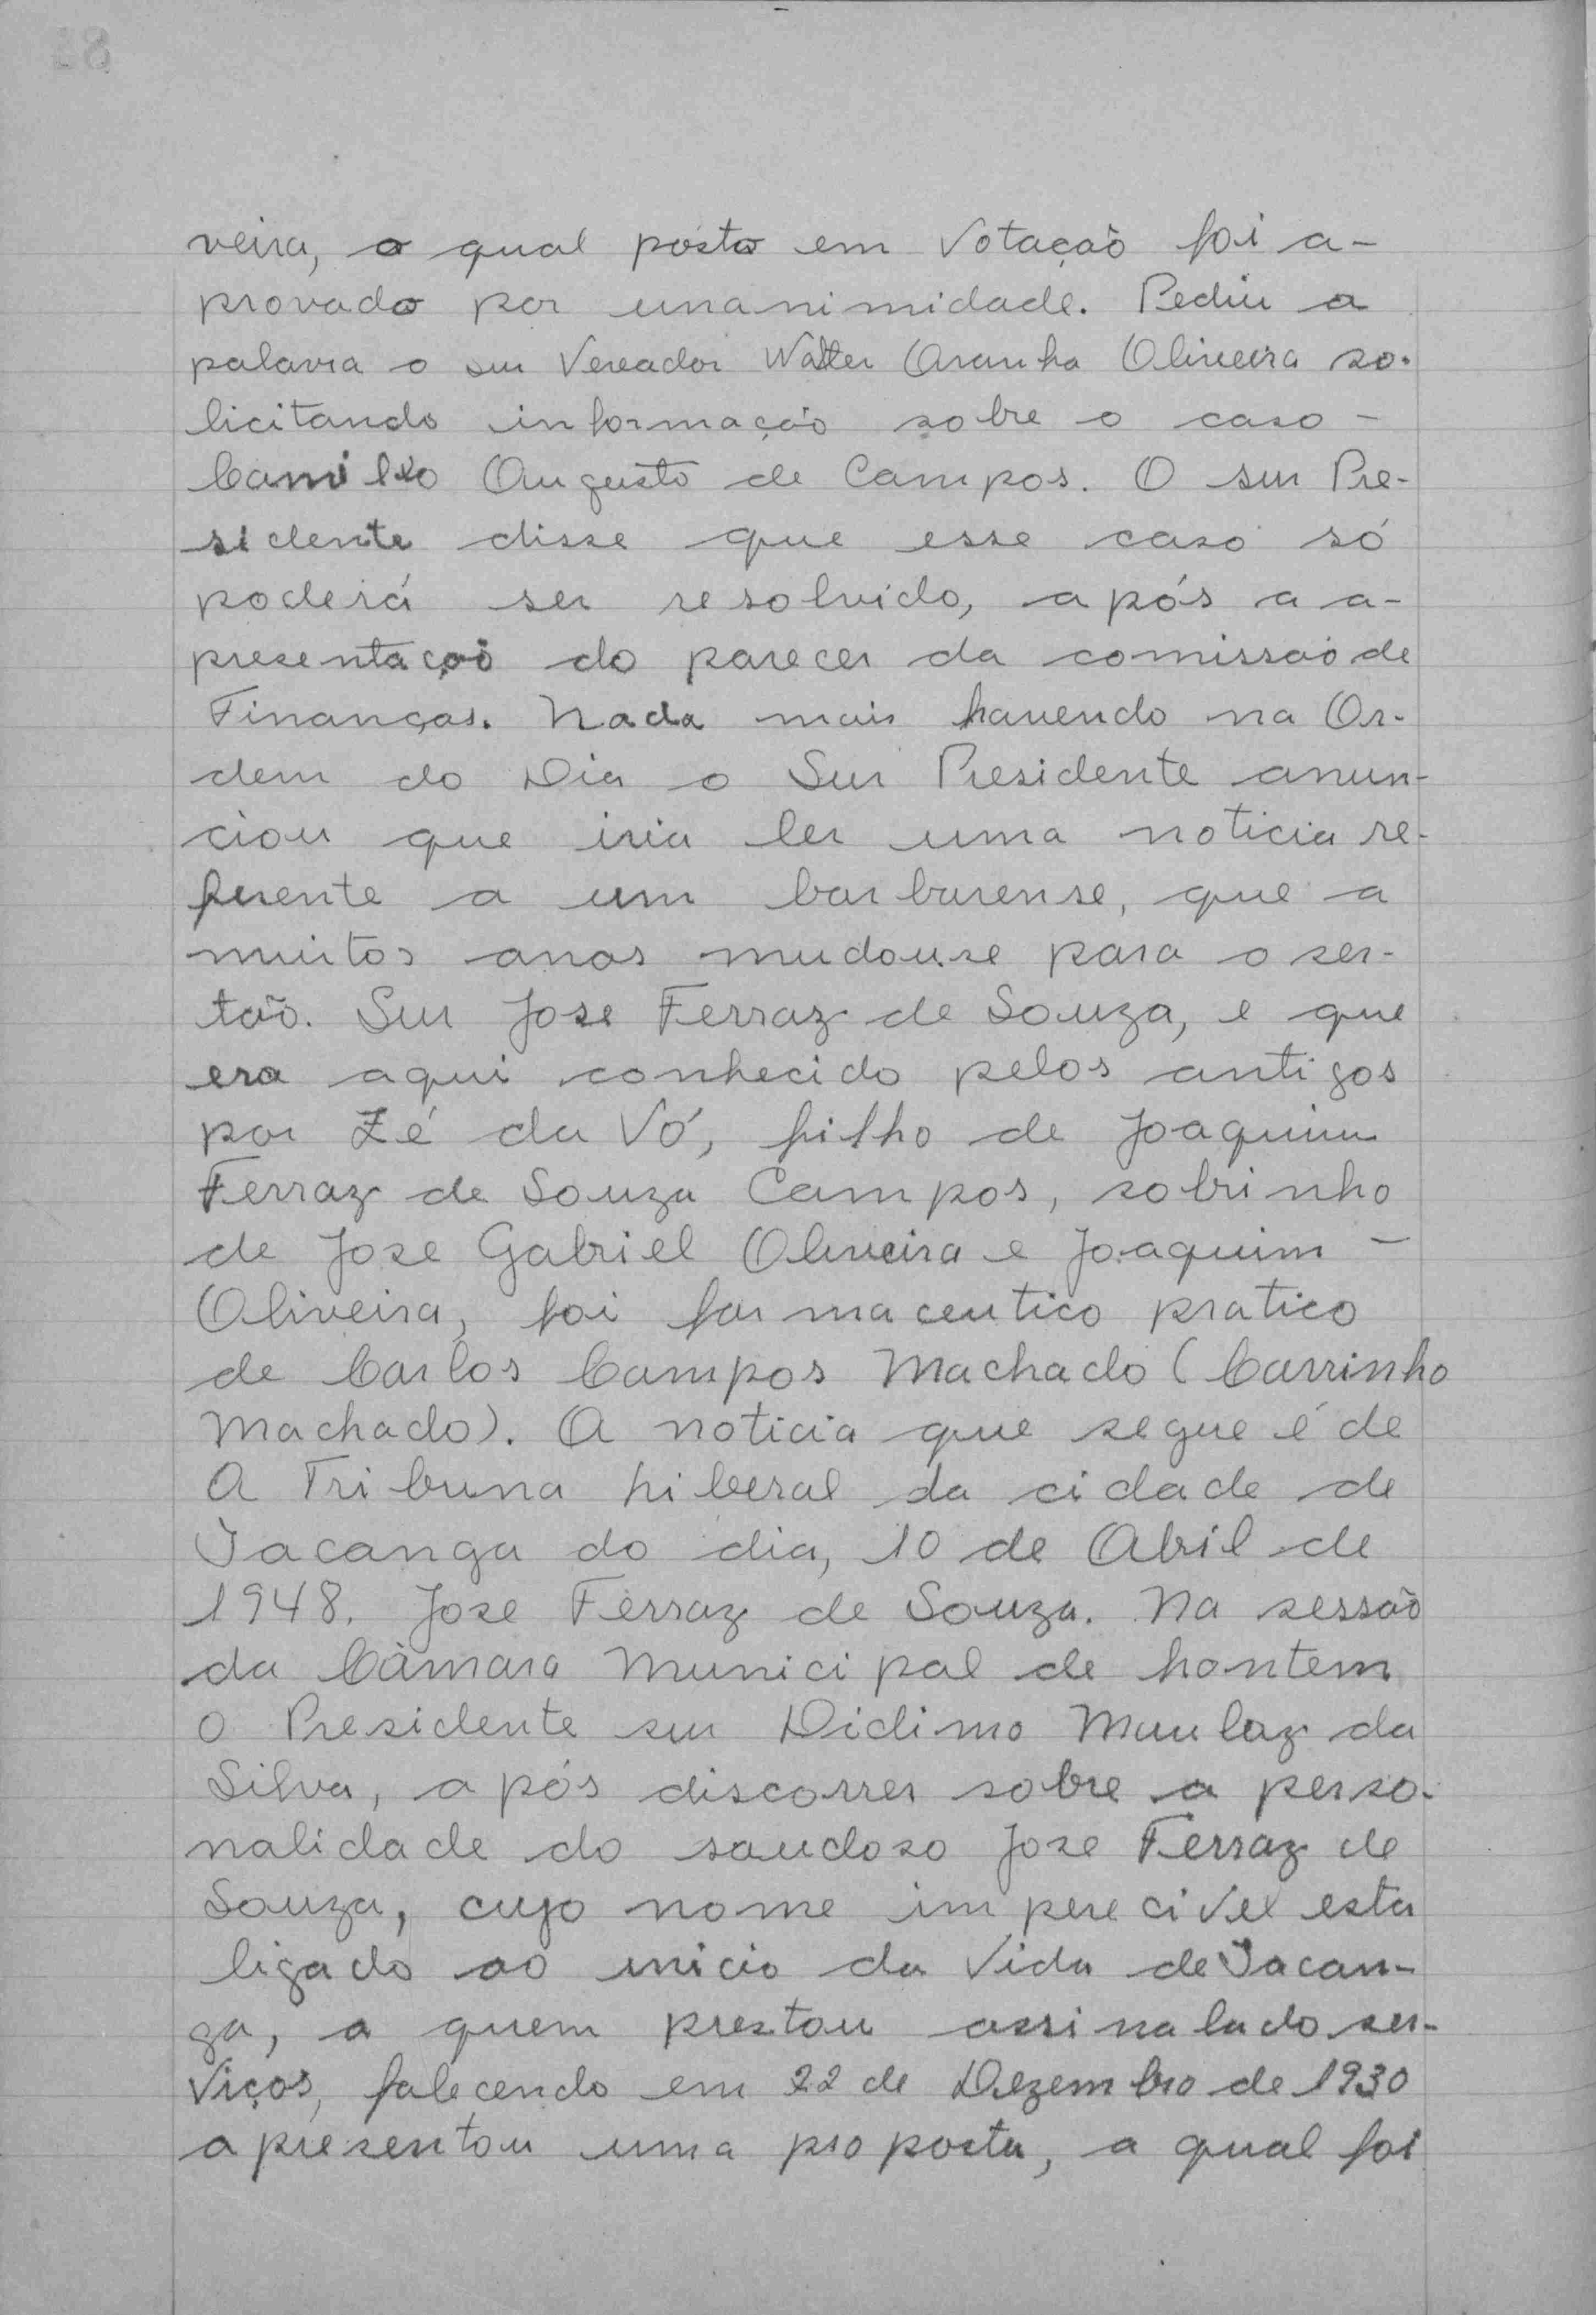 veira, o qual posto em votação foi a-
provado por unanimidade. Pediu a
palavra o snr Vereador Walter Aranha Oliveira so-
licitando informação sobre o caso -
Camillo Augusto de Campos. O snr Pre-
sidente disse que esse caso só
poderá ser resolvido, após a a-
presentação do parecer da comissão de
Finanças. Nada mais havendo na Or-
dem do Dia o Snr Presidente anun-
ciou que iria ler uma noticia re-
ferente a um barbarense, que a
muitos anos mudouse para o ser-
tão. Snr Jose Ferraz de Souza, e que
era aqui conhecido pelos antigos
por Zé da Vó, filho de Joaquim
Ferraz de Souza Campos, sobrinho
de Jose Gabriel Oliveira e Joaquim -
Oliveira, foi farmaceutico pratico
de Carlos Campos Machado (Carrinho
Machado). A noticia que segue é de
A Tribuna Liberal da cidade de
Iacanga do dia, 10 de Abril de
1948. Jose Ferraz de Souza. Na sessão
da Câmara Municipal de hontem
O Presidente snr Didimo da
Silva, após discorrer sobre a perso-
nalidade do saudoso Jose Ferraz de
Souza, cujo nome imperecivel esta
ligado ao inicio da vida de Iacan-
ga, a quem prestou assinalado ser-
viços, falecendo em 22 de Dezembro de 1930
apresentou uma proposta, a qual foi